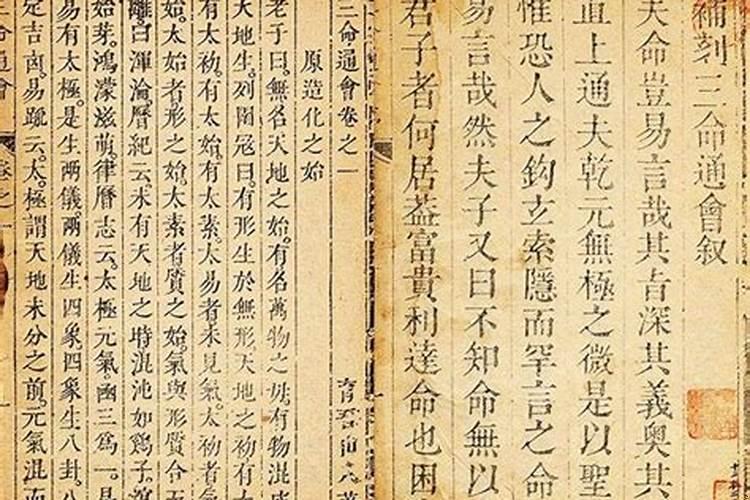 補刻三命通會叙
夫命豈易言哉其旨深其義奥其
直上通夫乾元無極之微是以聖
惟恐人之鈎玄索隱而罕言之命
易言哉然夫子又曰不知命無以
君子者何居葢富貴利達命也困
三命通會卷之一
原造化之始
老子曰無名天地之始有名萬物之母有物混成
天地生列圄冦曰有形生於無形天地之初有太
有太初有太始有太素太易者未見氣太初者
始太始者形之始太素者質之始氣與形質合而
離曰渾淪曆紀云未有天地之時混沌如鷄子
始芽鴻濛滋萌律曆志云太極元氣函三爲一
易有太極是生兩儀兩儀生四象四象生八卦八
定吉凶易䟽云太極謂天地未分之前元氣混